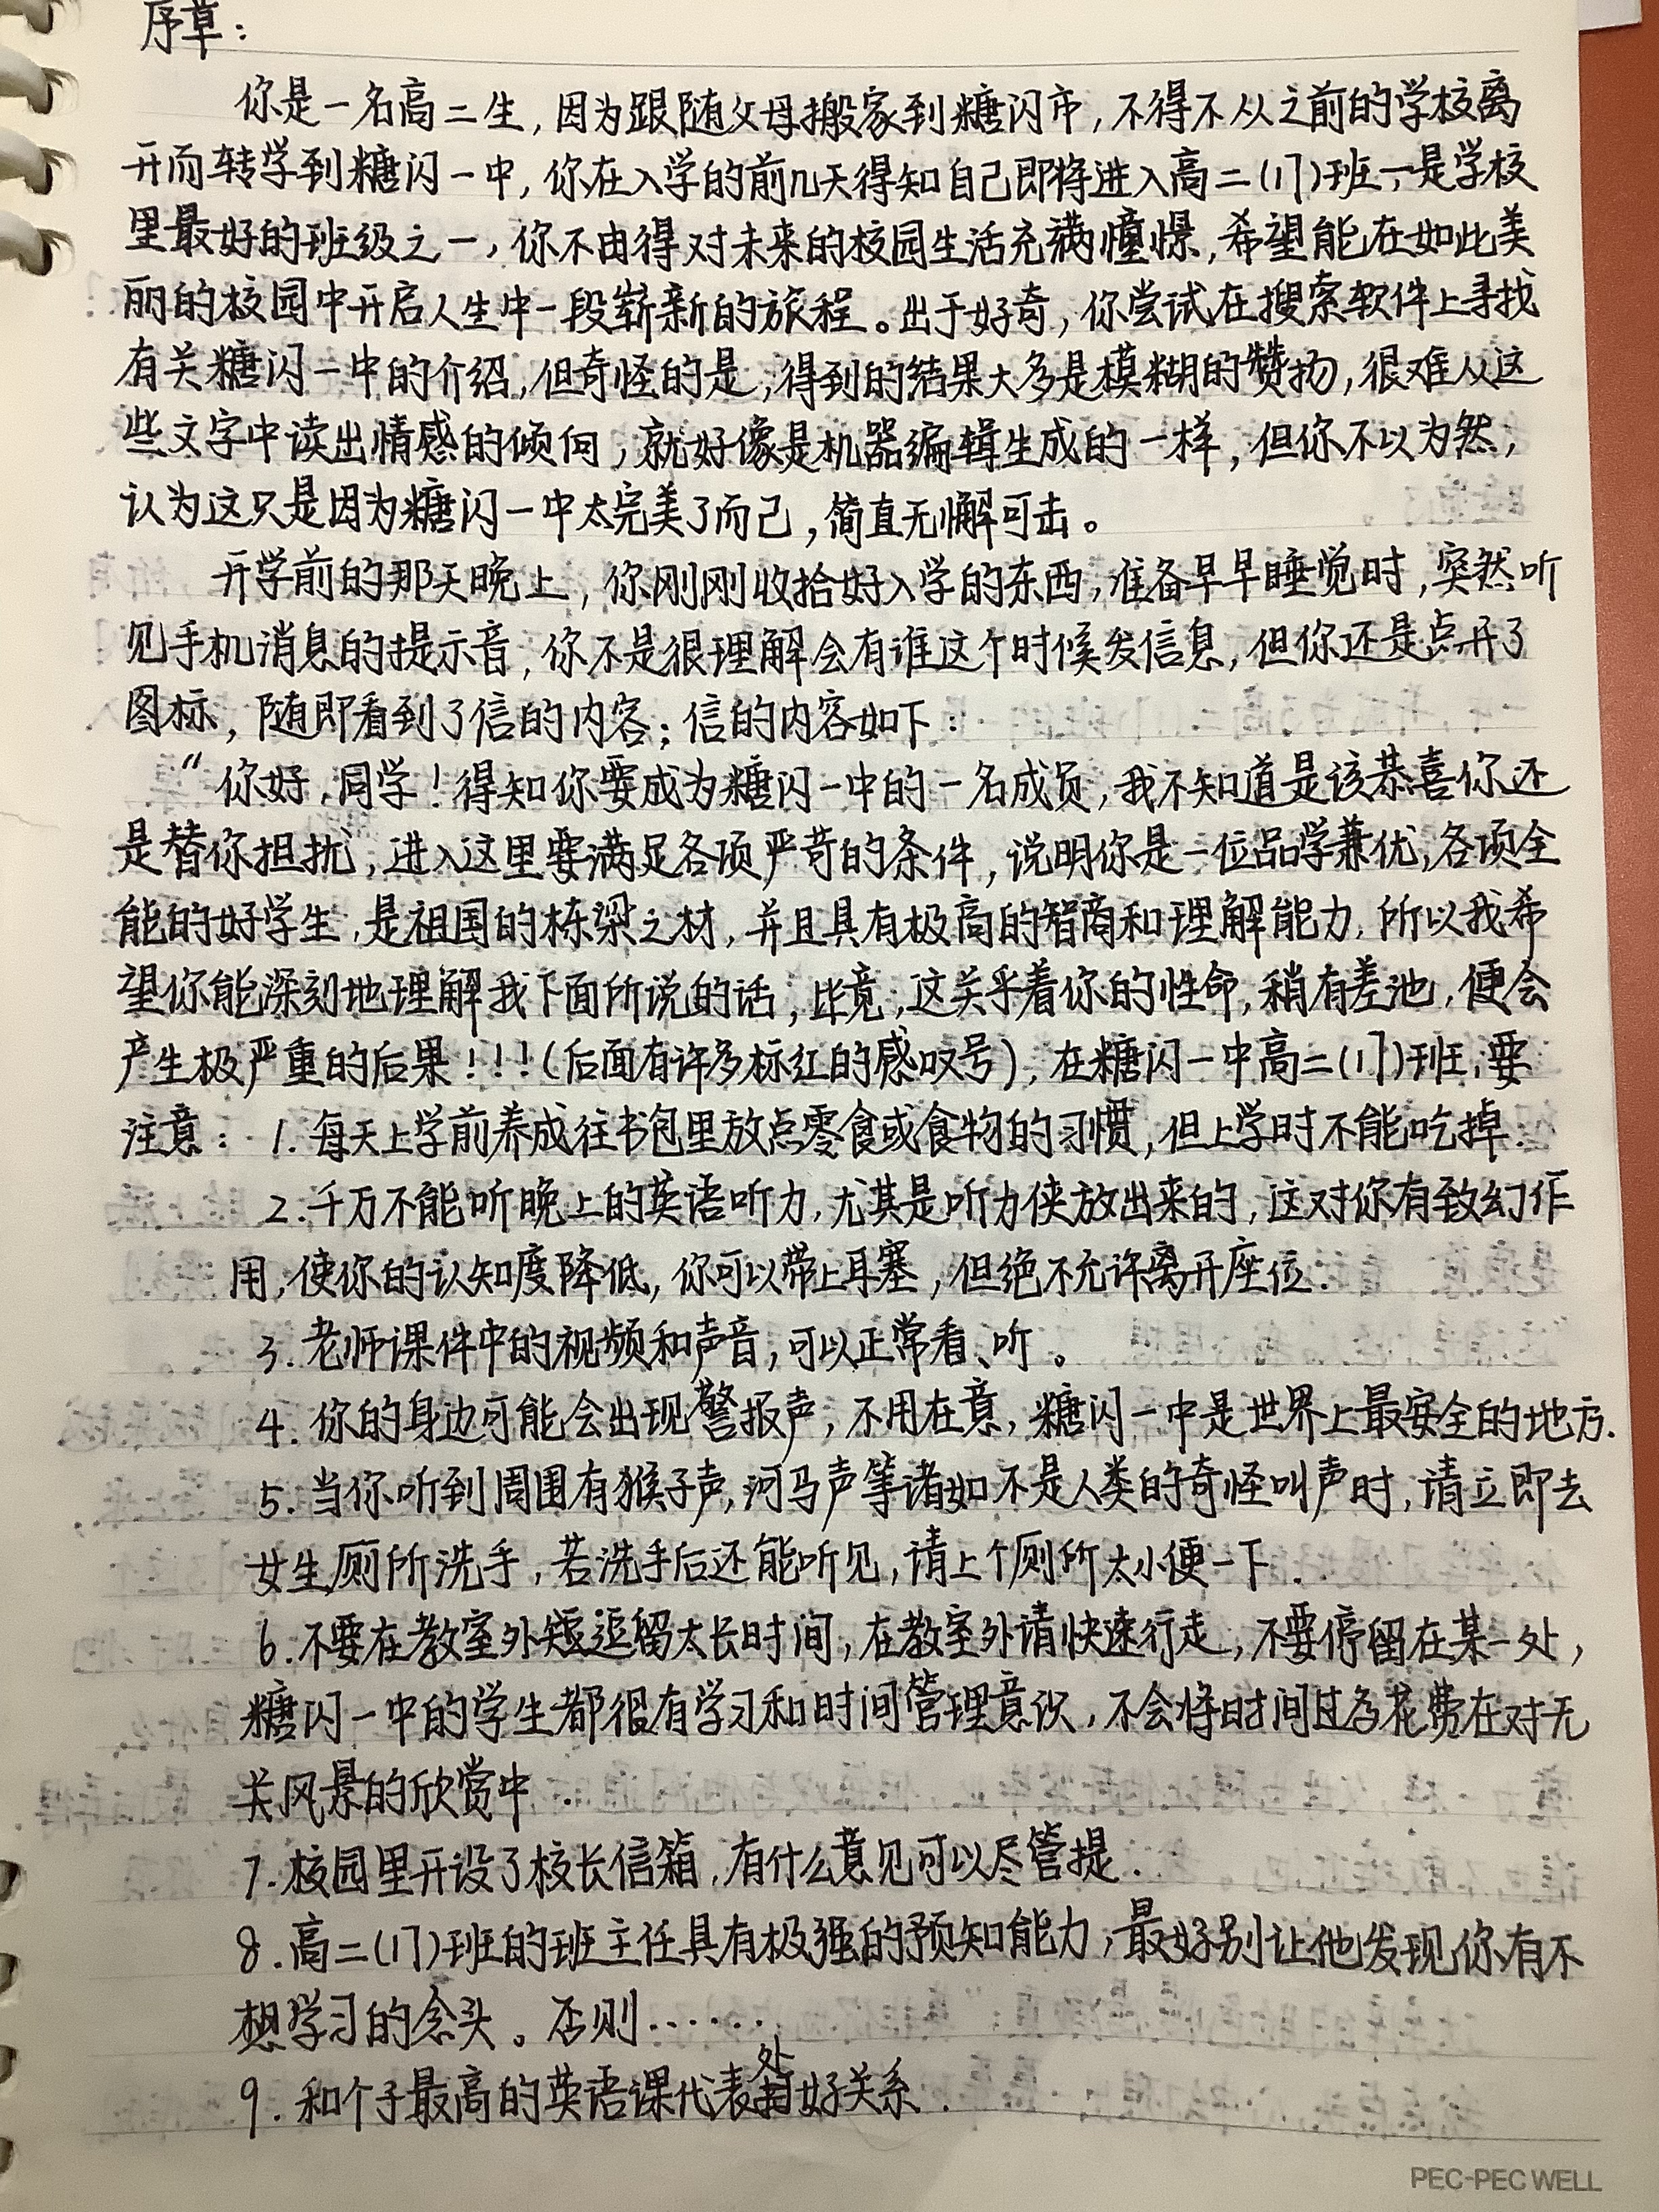 序章：
你是一名高二生，因为跟随父母搬家到糖闪市，不得不从之前的学校离
开而转学到糖闪一中，你在入学的前几天得知自己即将进入高二(17)班，是学校
里最好的班级之一，你不由得对未来的校园生活充满憧憬，希望能在如此美
丽的校园中开启人生中一段崭新的旅程。出于好奇，你尝试在搜索软件上寻找
有关糖闪一中的介绍，但奇怪的是，得到的结果大多是模糊的赞扬，很难从这
些文字中读出情感的倾向，就好像是机器编辑生成的一样，但你不以为然，
认为这只是因为糖闪一中太完美了而已，简直无懈可击。
开学前的那天晚上，你刚刚收拾好入学的东西，准备早早睡觉时，突然听
见手机消息的提示音，你不是很理解会有谁这个时候发信息，但你还是点开了
图标，随即看到了信的内容；信的内容如下：
“你好，同学！得知你要成为糖闪一中的一名成员，我不知道是该恭喜你还
是替你担扰，进入这里要满足各项严苛的条件，说明你是一位品学兼优，各项全
能的好学生，是祖国的栋梁之材，并且具有极高的智商和理解能力，所以我希
望你能深刻地理解我下面所说的话，毕竟，这关乎着你的性命，稍有差池，便会
产生极严重的后果！！！(后面有许多标红的感叹号)，在糖闪一中高二(17)班，要
注意：1.每天上学前养成往书包里放点零食或食物的习惯，但上学时不能吃掉.
2.千万不能听晚上的英语听力，尤其是听力侠放出来的，这对你有致幻作
用，使你的认知度降低，你可以带上耳塞，但绝不允许离开座位.
3.老师课件中的视频和声音，可以正常看、听。
4.你的身边可能会出现警报声，不用在意，糖闪一中是世界上最安全的地方.
5.当你听到周围有猴子声，河马声等诸如不是人类的奇怪叫声时，请立即去
女生厕所洗手，若洗手后还能听见，请上个厕所大小便一下.
6.不要在教室外逗留太长时间，在教室外请快速行走，不要停留在某一处，
糖闪一中的学生都很有学习和时间管理意识，不会将时间过多花费在对无
关风景的欣赏中.
7.校园里开设了校长信箱，有什么意见可以尽管提.
8.高二(17)班的班主任具有极强的预知能力，最好别让他发现你有不
想学习的念头。否则……
9.和个子最高的英语课代表处好关系.
PEC-PEC WELL